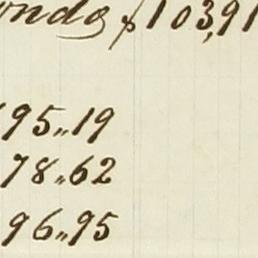 onds $103,91
95.,19
78.,62
96.,95